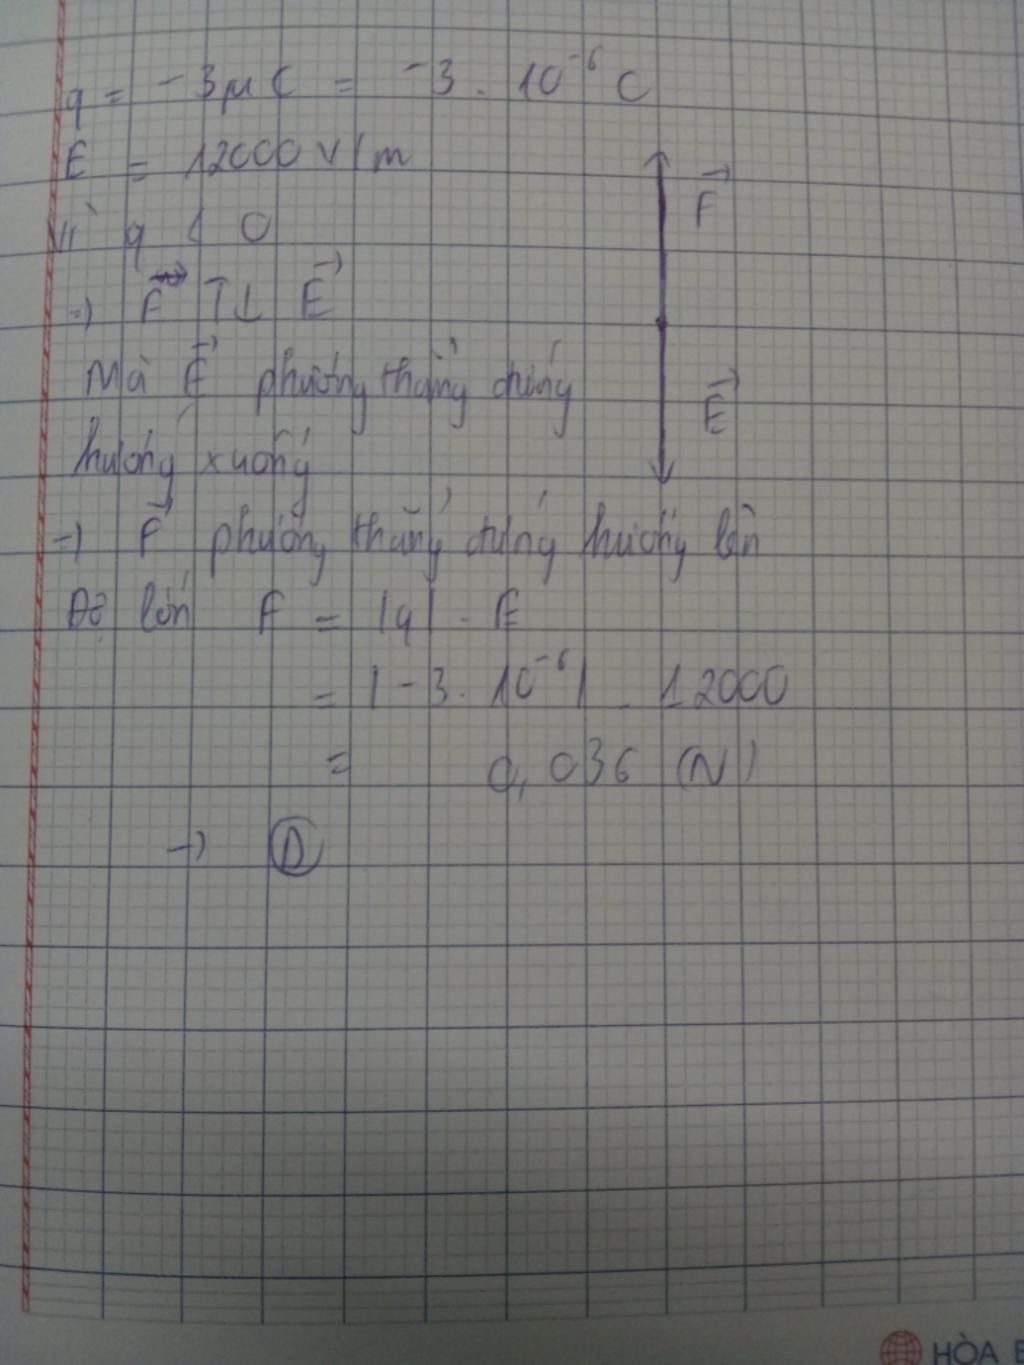 q = -3μC = -3 . 10⁻⁶ C
E = 12000 V/m
Vì q < 0
=) F⃗ ↑↓ E⃗
Mà E⃗ phương thẳng đứng
hướng xuống
F⃗
E⃗
=) F⃗ phương thẳng đứng hướng lên
Độ lớn F = |q| . E
= |-3. 10⁻⁶| . 12000
= 0,036 (N)
→ D
HÒA